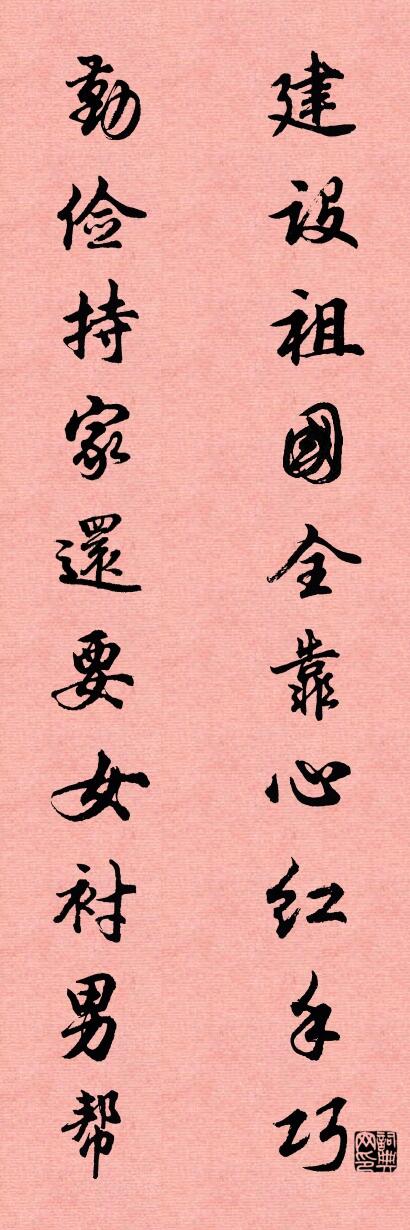 建設祖國全靠心红手巧
勤俭持家還要女衬男帮
詞典网印